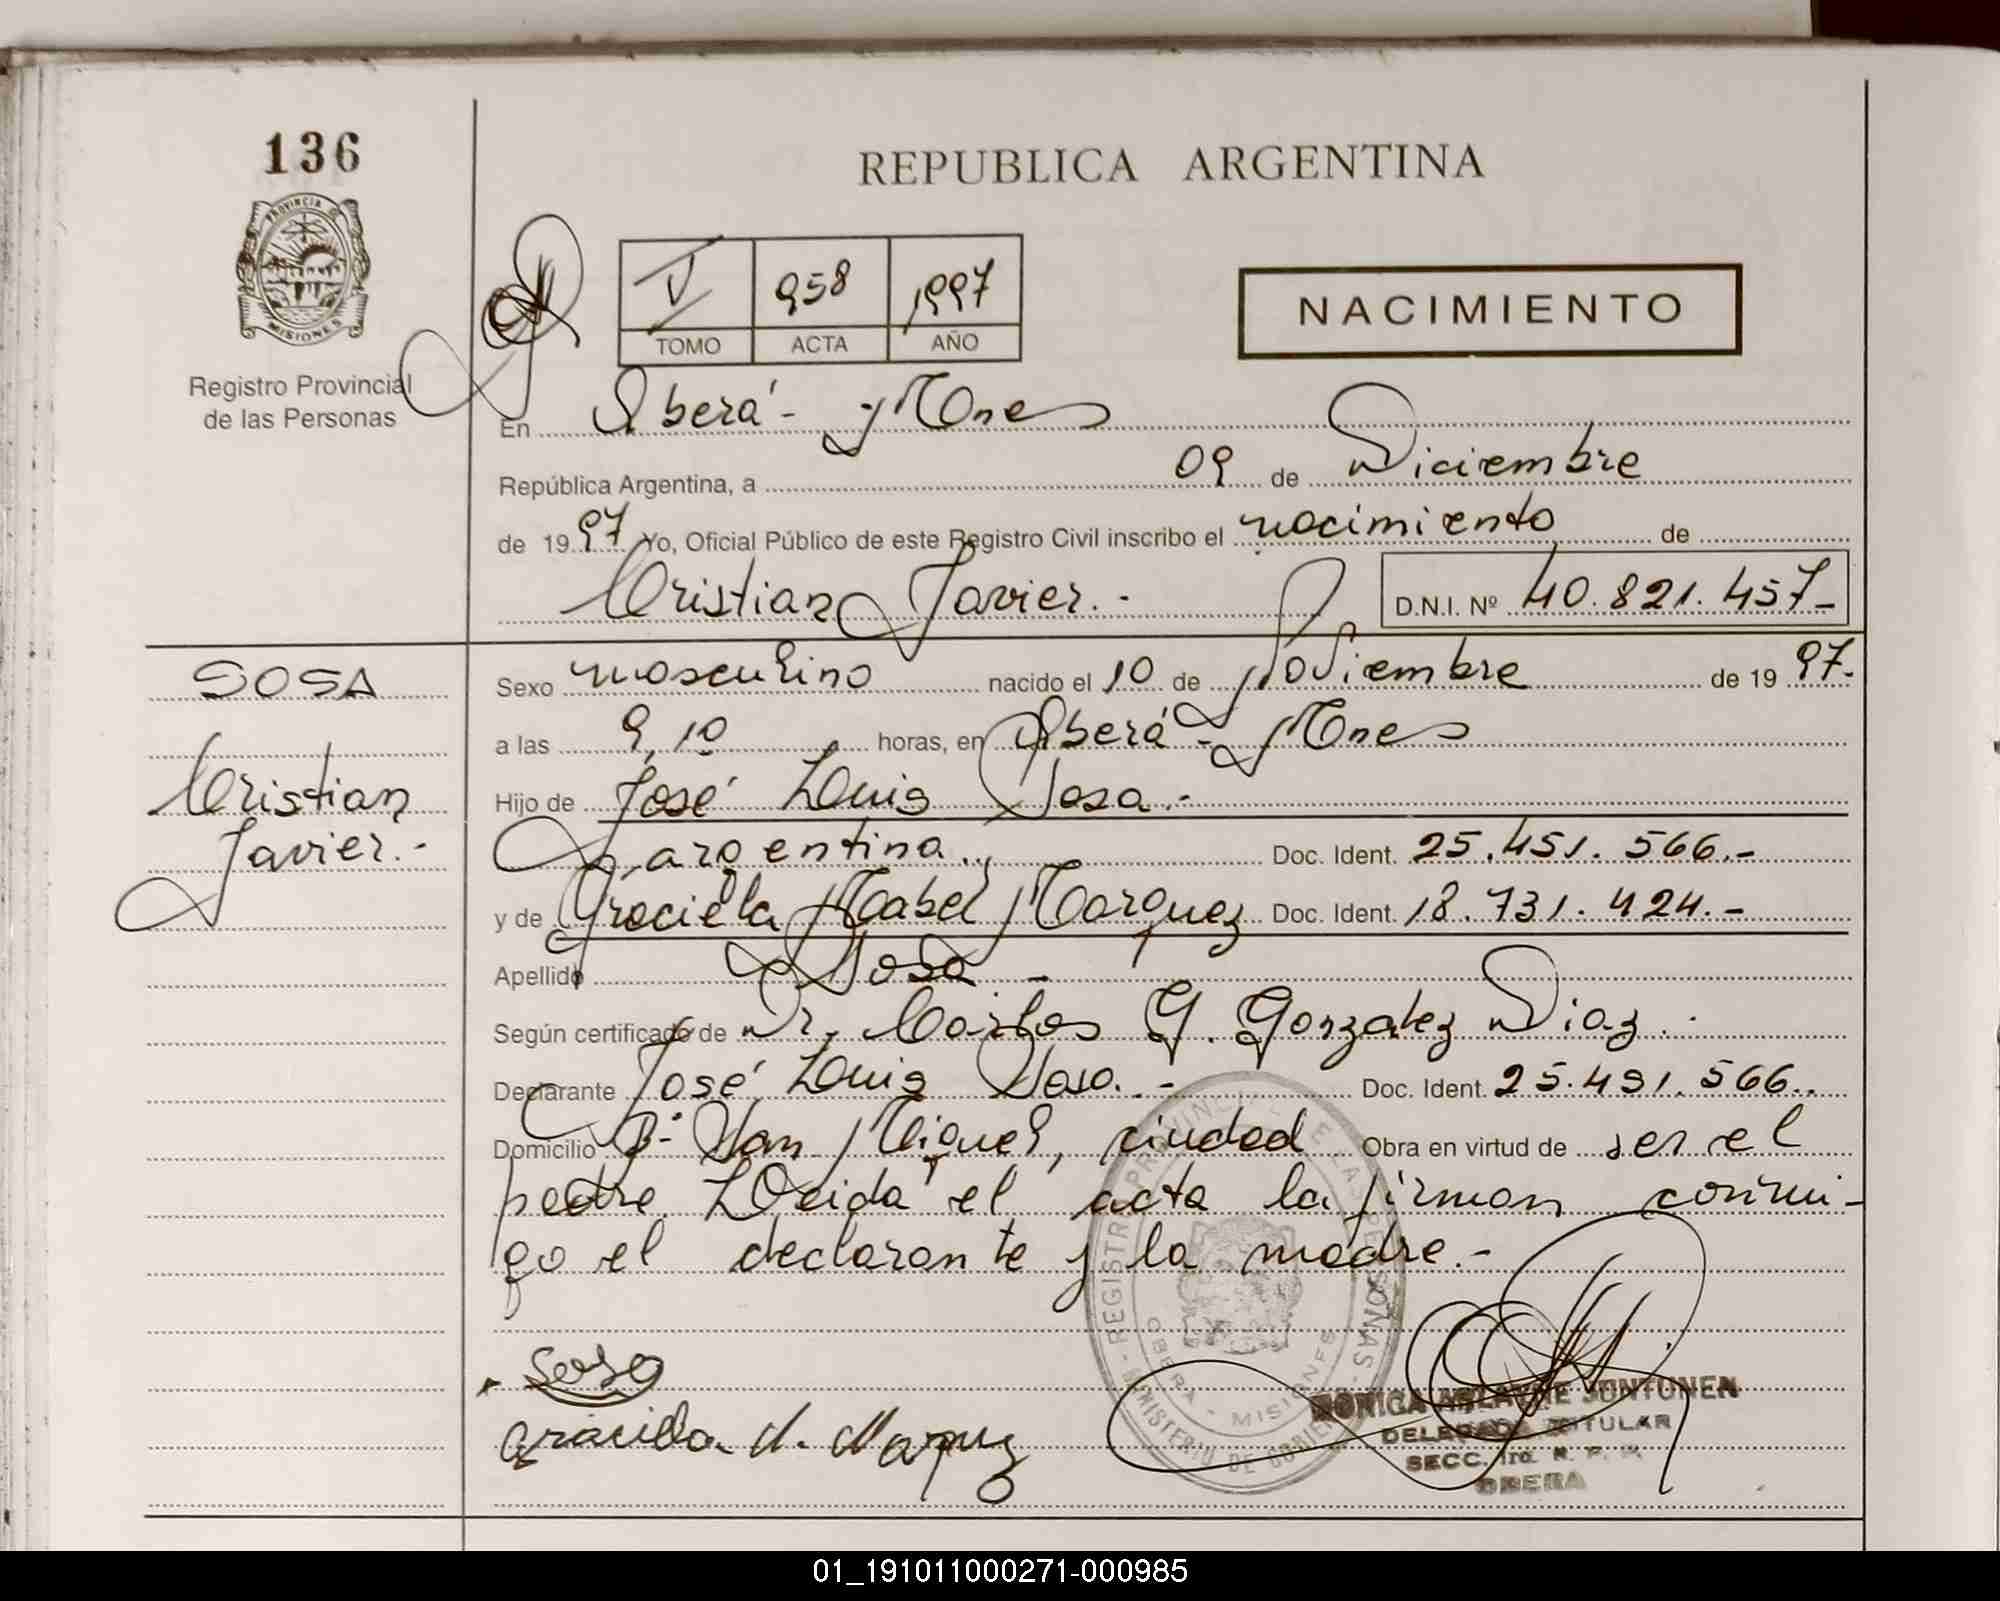 136
REPUBLICA ARGENTINA
PROVINCIA DE
MISIONES
Registro Provincial
de las Personas
V 958 1997
TOMO ACTA AÑO
NACIMIENTO
En Oberá - Mnes
República Argentina, a 09 de Diciembre
de 1997 Yo, Oficial Público de este Registro Civil inscribo el nacimiento de
Cristian Javier.- D.N.I. Nº 40.821.457-
SOSA
Cristian
Javier.-
Sexo masculino nacido el 10 de Noviembre de 1997.
a las 9,10 horas, en Oberá - Mnes
Hijo de José Luis Sosa.-
argentina.. Doc. Ident. 25.451.566.-
y de Graciela Mabel Marquez Doc. Ident. 18.731.424.-
Apellido Sosa -
Según certificado de Dr. Carlos G. Gonzalez Diaz.-
Declarante José Luis Sosa.- Doc. Ident. 25.451.566..
Domicilio Bº San Miguel, ciudad Obra en virtud de ser el
padre. Leida el acta la firman conmi-
go el declarante y la madre.-
Sosa
Graciela M. Marquez
REGISTRO PROVINCIAL DE LAS PERSONAS - MINISTERIO DE GOBIERNO
OBERA - MISIONES
MONICA JUNTUNEN
DELEGADA TITULAR
SECC. 1ra. R. P. P.
OBERA
01_191011000271-000985